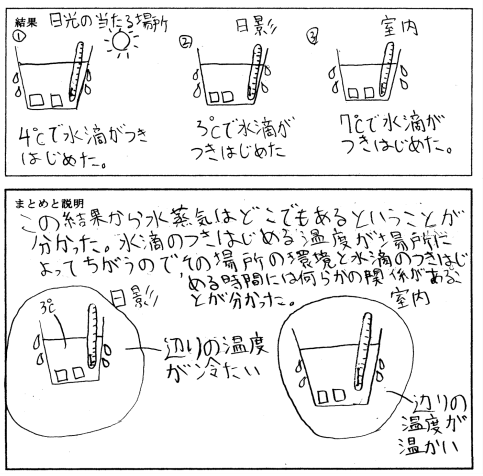 結果
① 日光の当たる場所
② 日影
③ 室内
4℃で水滴がつき
はじめた。
3℃で水滴が
つきはじめた
7℃で水滴が
つきはじめた。
まとめと説明
この結果から水蒸気はどこでもあるということが
分かった。水滴のつきはじめる温度が場所に
よってちがうので、その場所の環境と水滴のつきはじ
める時間には何らかの関係があるこ
とが分かった。
日影
3℃
辺りの温度
が冷たい
室内
辺りの
温度が
温かい